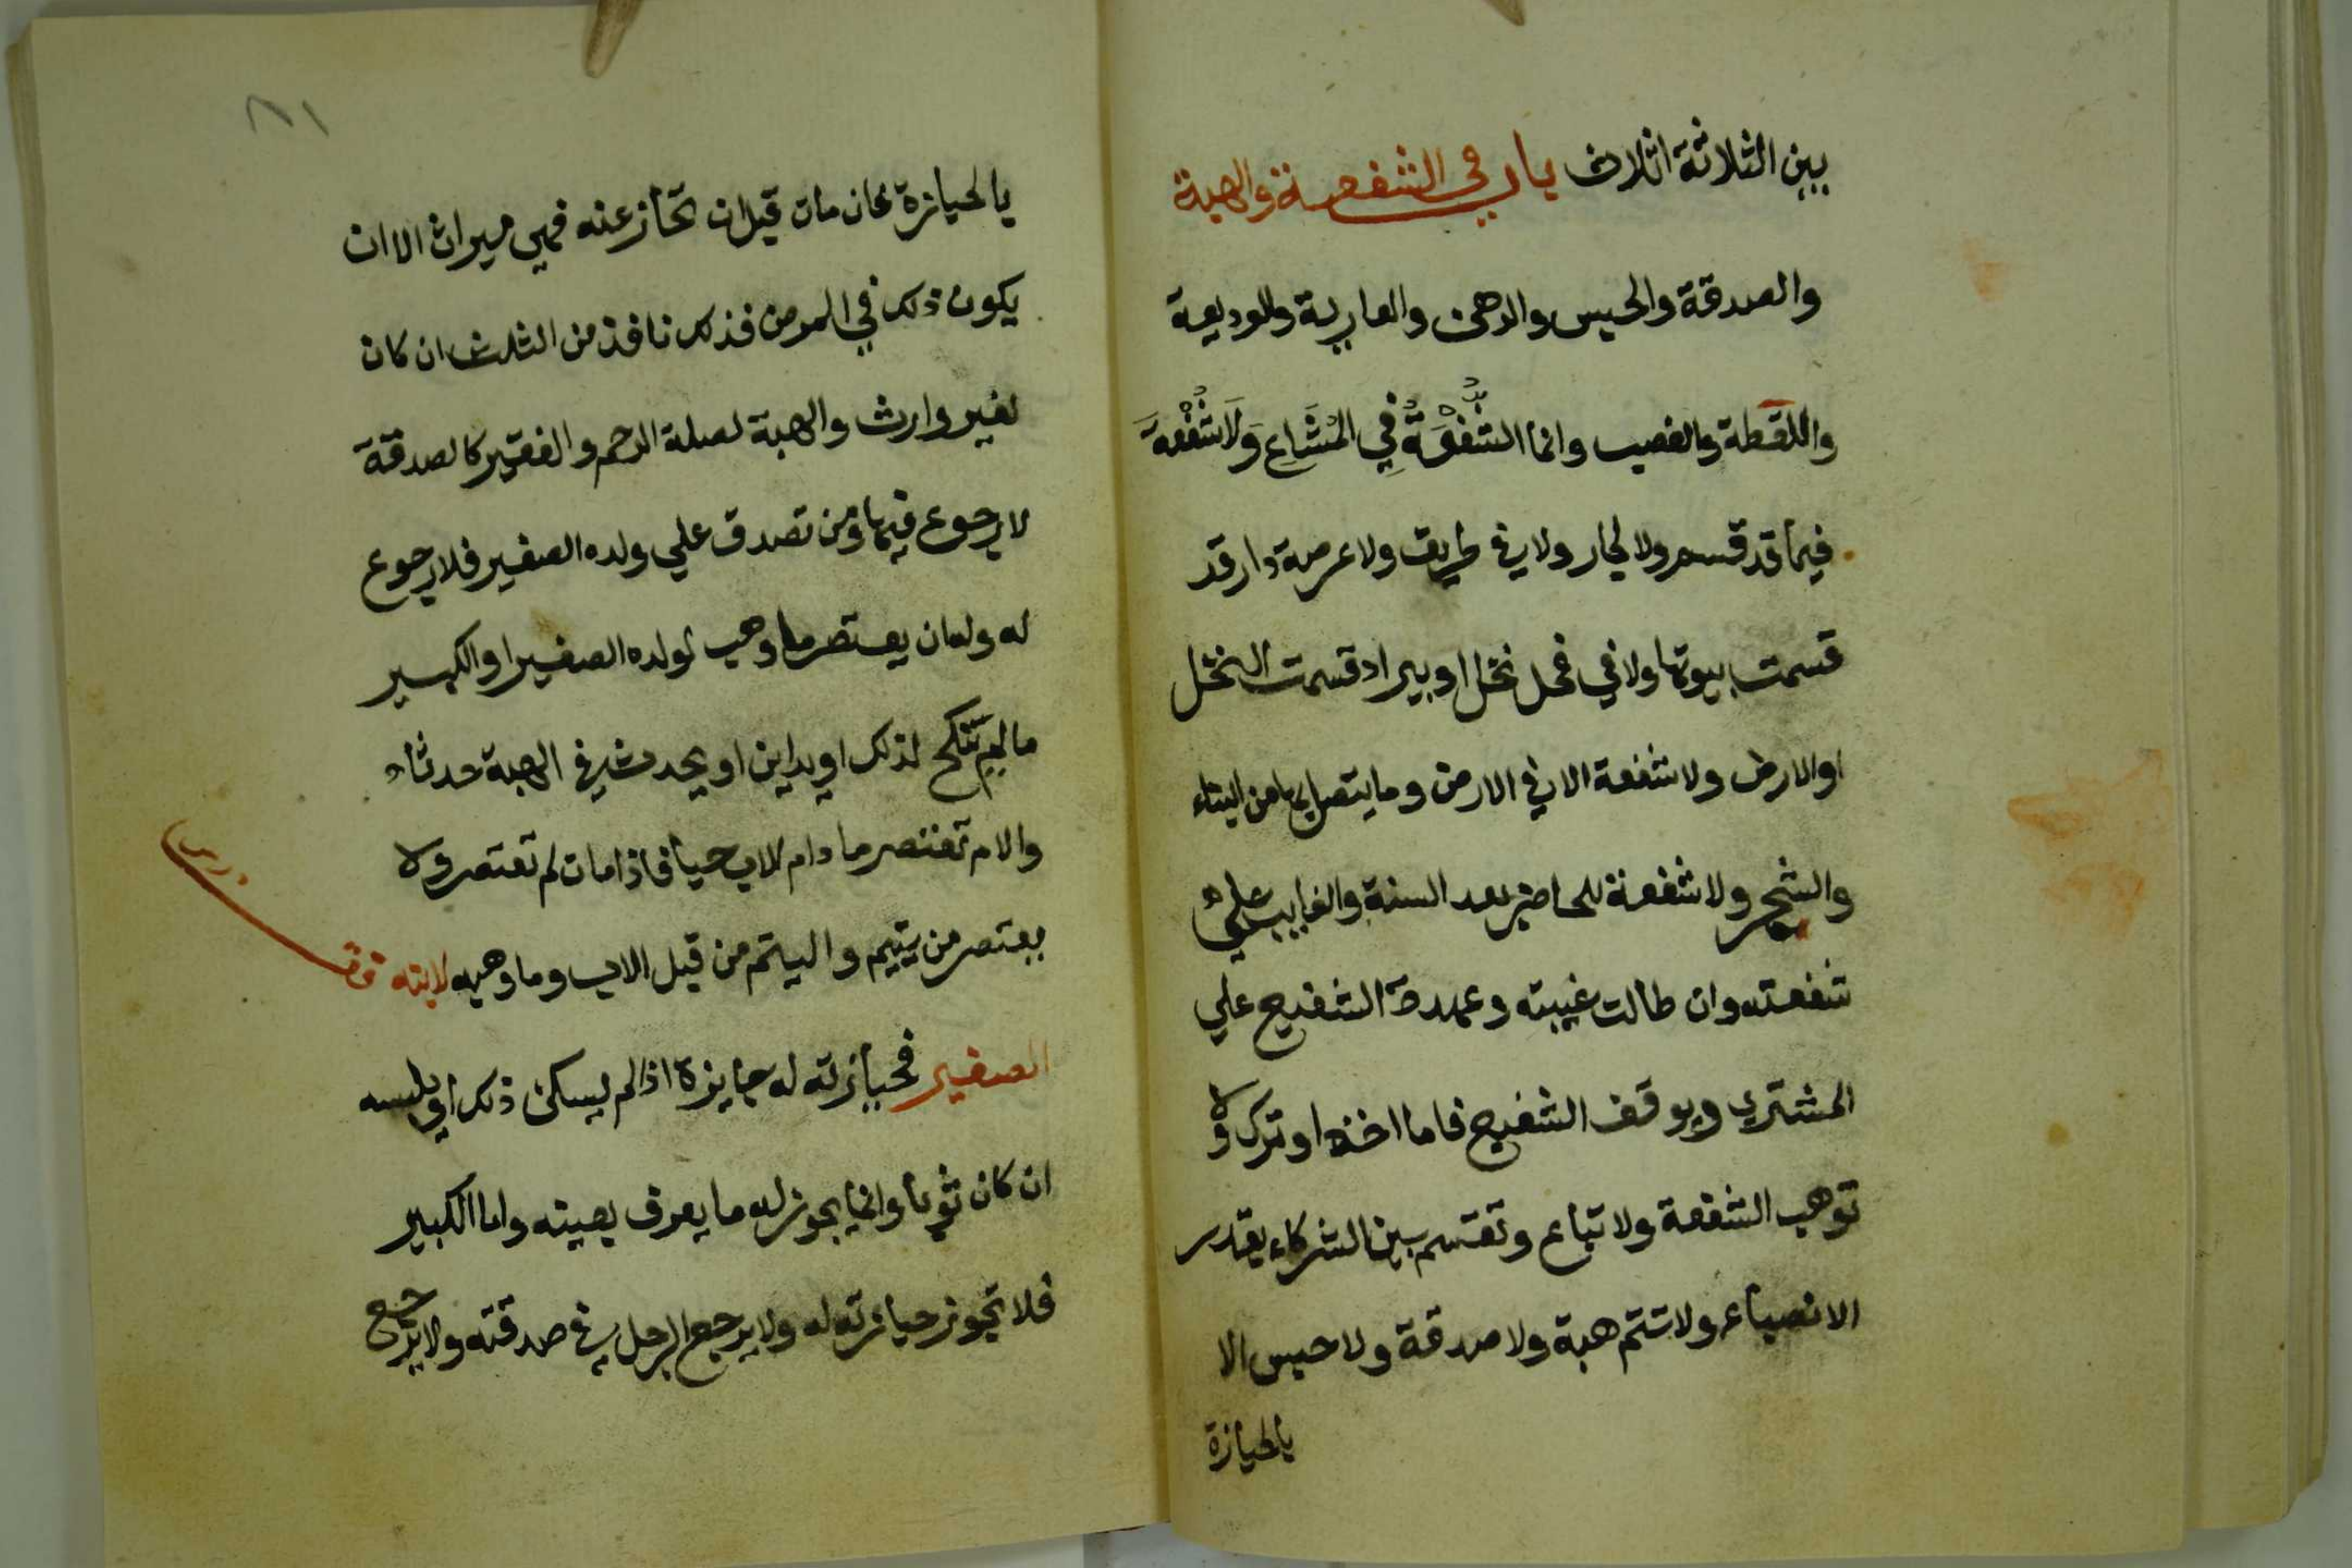 بين الثلاثة اثلاث باب في الشفعة والهبة
والصدقة والحبس والرهن والعارية والوديعة
واللقطة والغصب وانما الشُّفْعَةُ فِي الْمُشَاعِ وَلَا شُفْعَةَ
فيما قد قسم ولا لجار ولا في طريق ولا عرصة دار قد
قسمت بيوتها ولا في فحل نخل او بير اد قسمت النخل
او الارض ولا شفعة الا في الارض وما يتصل بها من البناء
والشجر ولا شفعة للحاضر بعد السنة والغايب علي
شفعته وان طالت غيبته وعهدة الشفيع علي
المشتري ويوقف الشفيع فاما اخذ او ترك ولا
توهب الشفعة ولا تباع وتقسم بين الشركاء بقدر
الانصباء ولا تتم هبة ولا صدقة ولا حبس الا
بالحيازة
٨١
بالحيازة فان مات قبل ان تحاز عنه فهي ميراث الا ان
يكون ذلك في المرض فذلك نافذ من الثلث ان كان
لغير وارث والهبة لصلة الرحم والفقير كالصدقة
لا رجوع فيها ومن تصدق علي ولده الصغير فلا رجوع
له وله ان يعتصر ما وهب لولده الصغير او الكبير
ما لم ينكح لذلك او يداين او يحدث في الهبة حدثا
والام تعتصر ما دام الاب حيا فاذا مات لم تعتصر ولا
يعتصر من يتيم واليتم من قبل الاب وما وهبه لابنه قف
درس
الصغير فحيازته له جايزة اذا لم يسكن ذلك او يلبسه
ان كان ثوبا وانما يجوز له ما يعرف بعينه واما الكبير
فلا تجوز حيازته له ولا يرجع الرجل في صدقته ولا ترجع